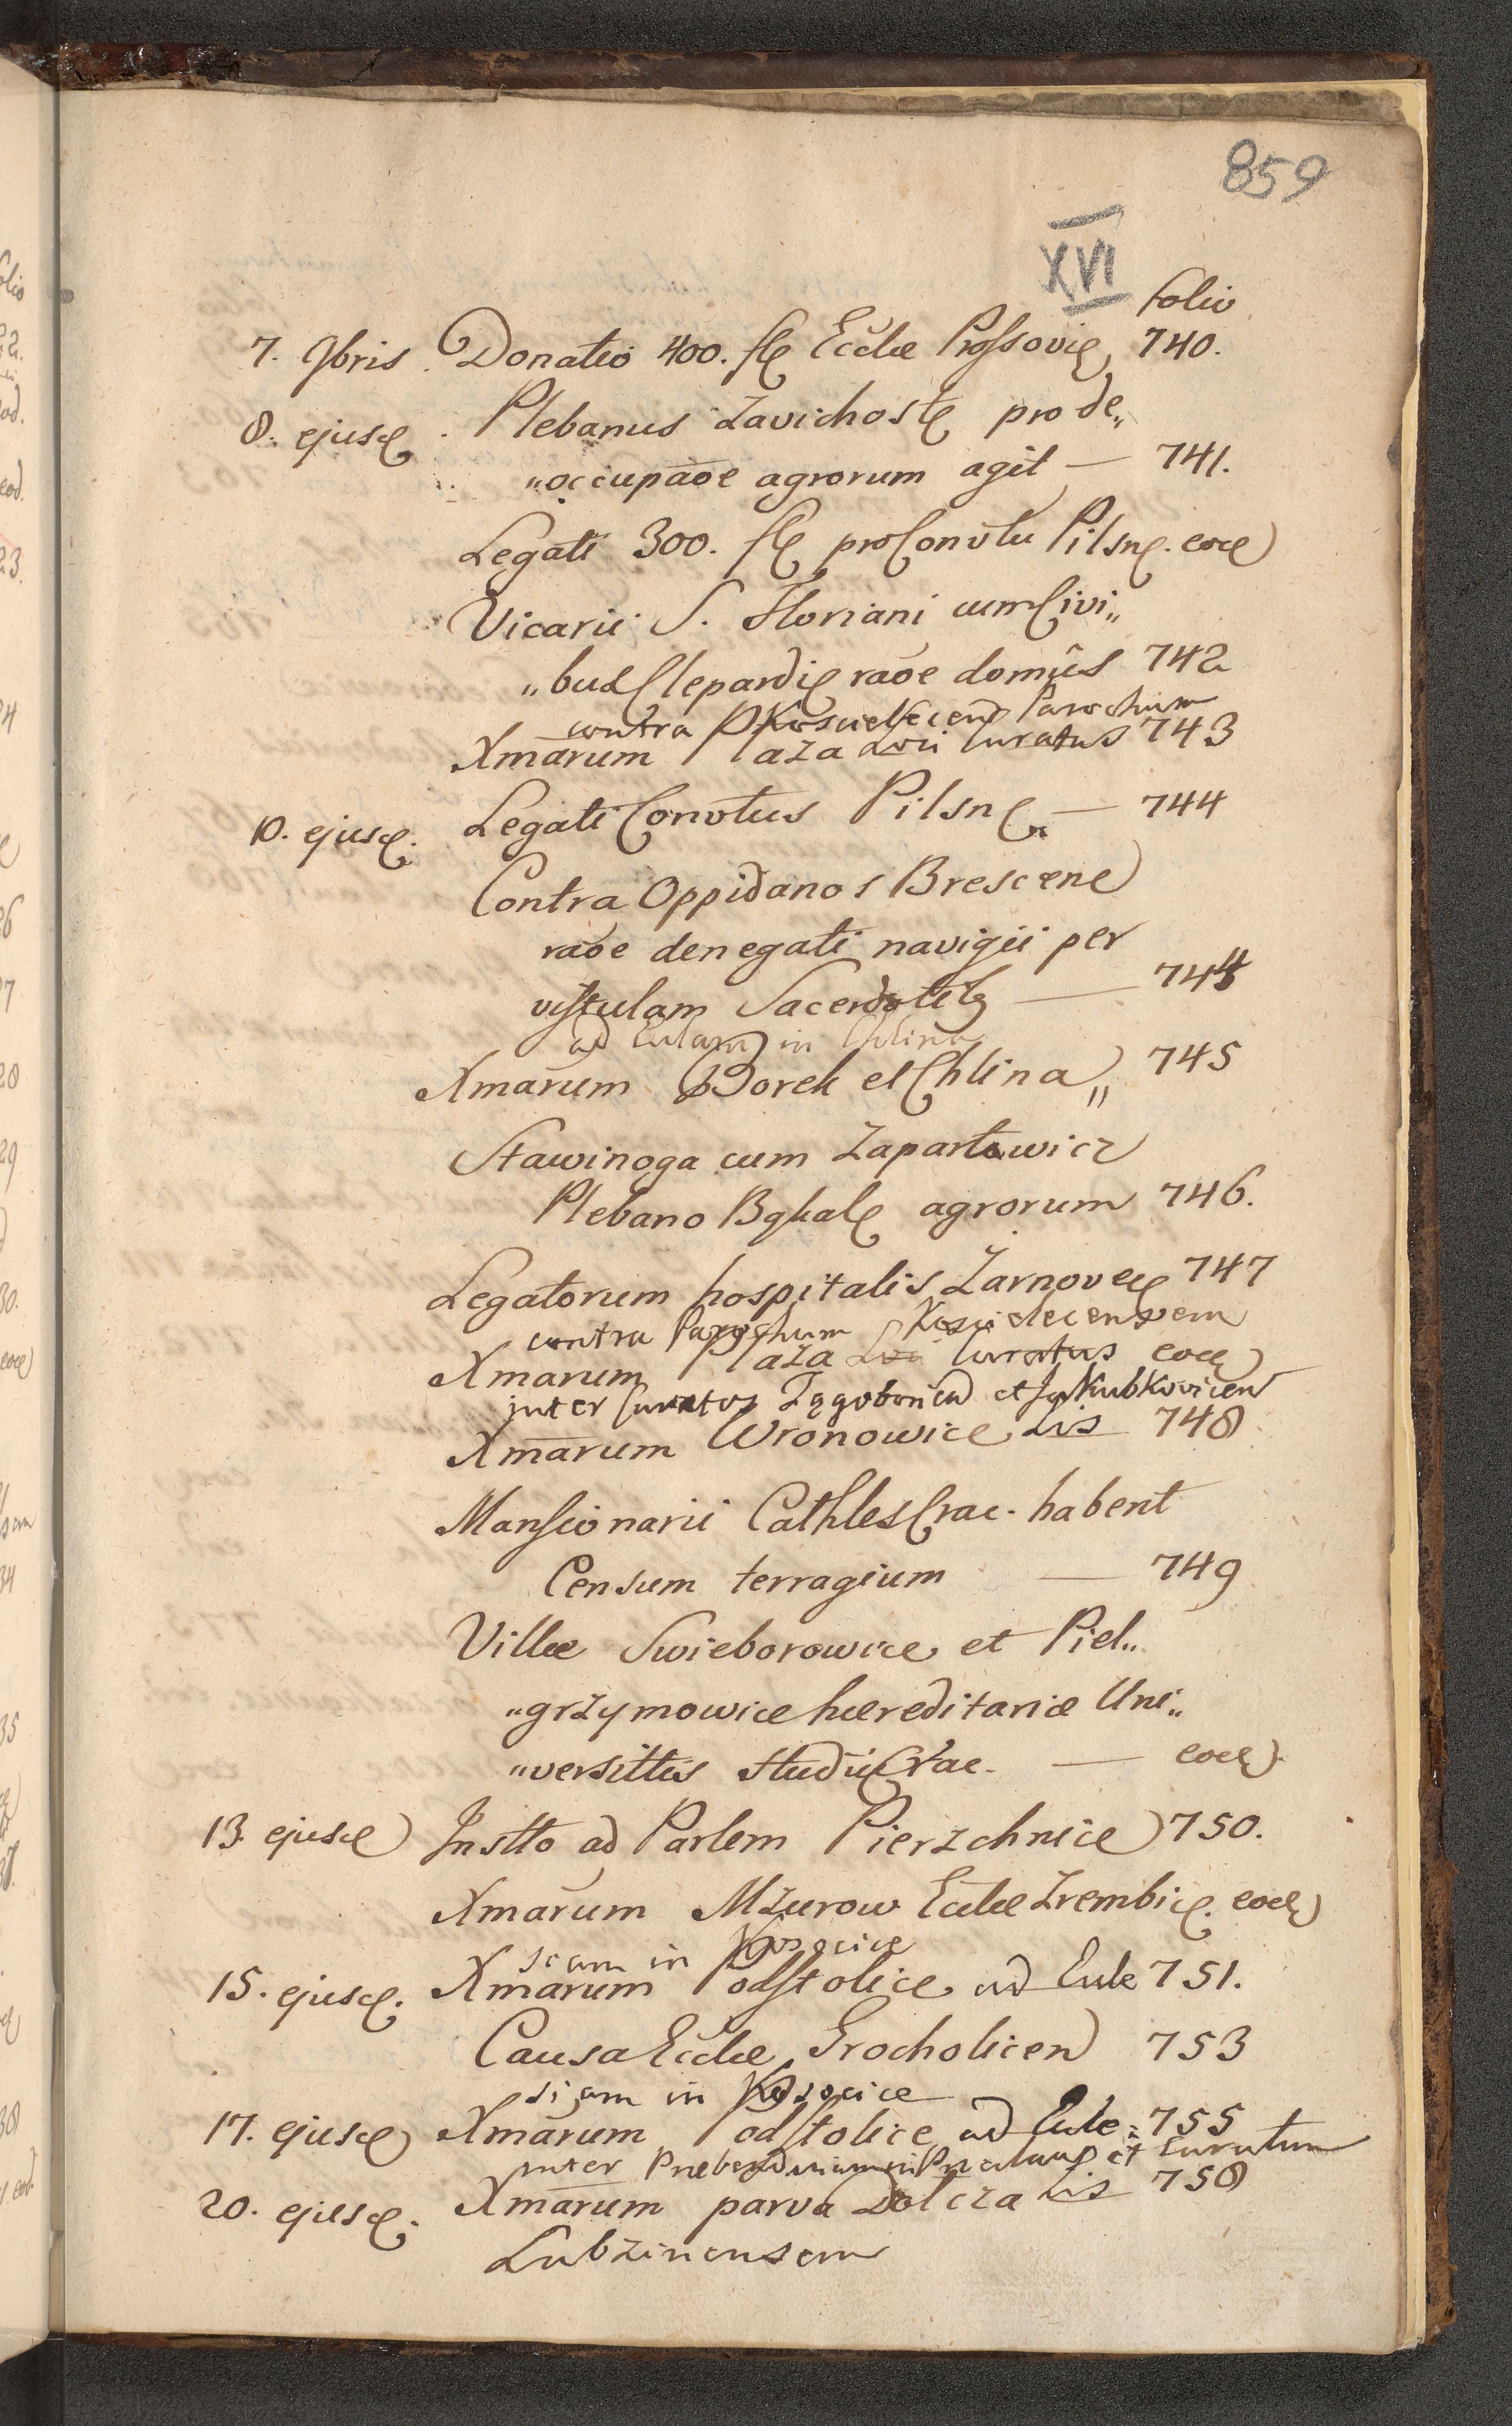 859
XVI
folio
7. 9bris. Donatio 400. fl Ecclæ Prossovię 740.
8. ejusd. Plebanus Zavichost pro de„
„occupaõe agrorum agit — 741.
Legati 300. fl pro Convtu Pilsn. eod
Vicarii S. Floriani cum Civi„
„bus Clepardię raõe domûs 742
contra Parochum
Xmarum Plaza Curatus 743
10. ejusd. Legati Convtus Pilsn — 744
Contra Oppidanos Brescene
raõe denegati navigii per
vistulam Sacerdotib — 744
ad in Chlina
Xmarum Borek et Chlina„ 745
Stawinoga cum Zapartowicz
Plebano Bgkal agrorum 746.
Legatorum hospitalis Żarnovec 747
contra Parochum Kościelecensem
Xmarum Plaza Curatus eod
inter Curatos et
Xmarum Wronowice Lis 748
Mansionarii Cathles Crac. habent
Censum terragium — 749
Villæ Swieborowice et Piel„
„grzymowice hæreditariæ Uni„
„versittis studii Crac. — eod.
13. ejusd Instto ad Parlem Pierzchnice 750.
Xmarum Mzurow Ecclæ Zrembic. eod
siam in Kosocice
15. ejusd. Xmarum Podstolice ad Ecle 751.
Causa Ecclæ Grocholicen 753
siam in Kosocice
17. ejusd Xmarum Podstolice ad Ecle: 755
inter et Curatum
20. ejusd. Xmarum parva Dolcza Lis 758
Lubzinensem